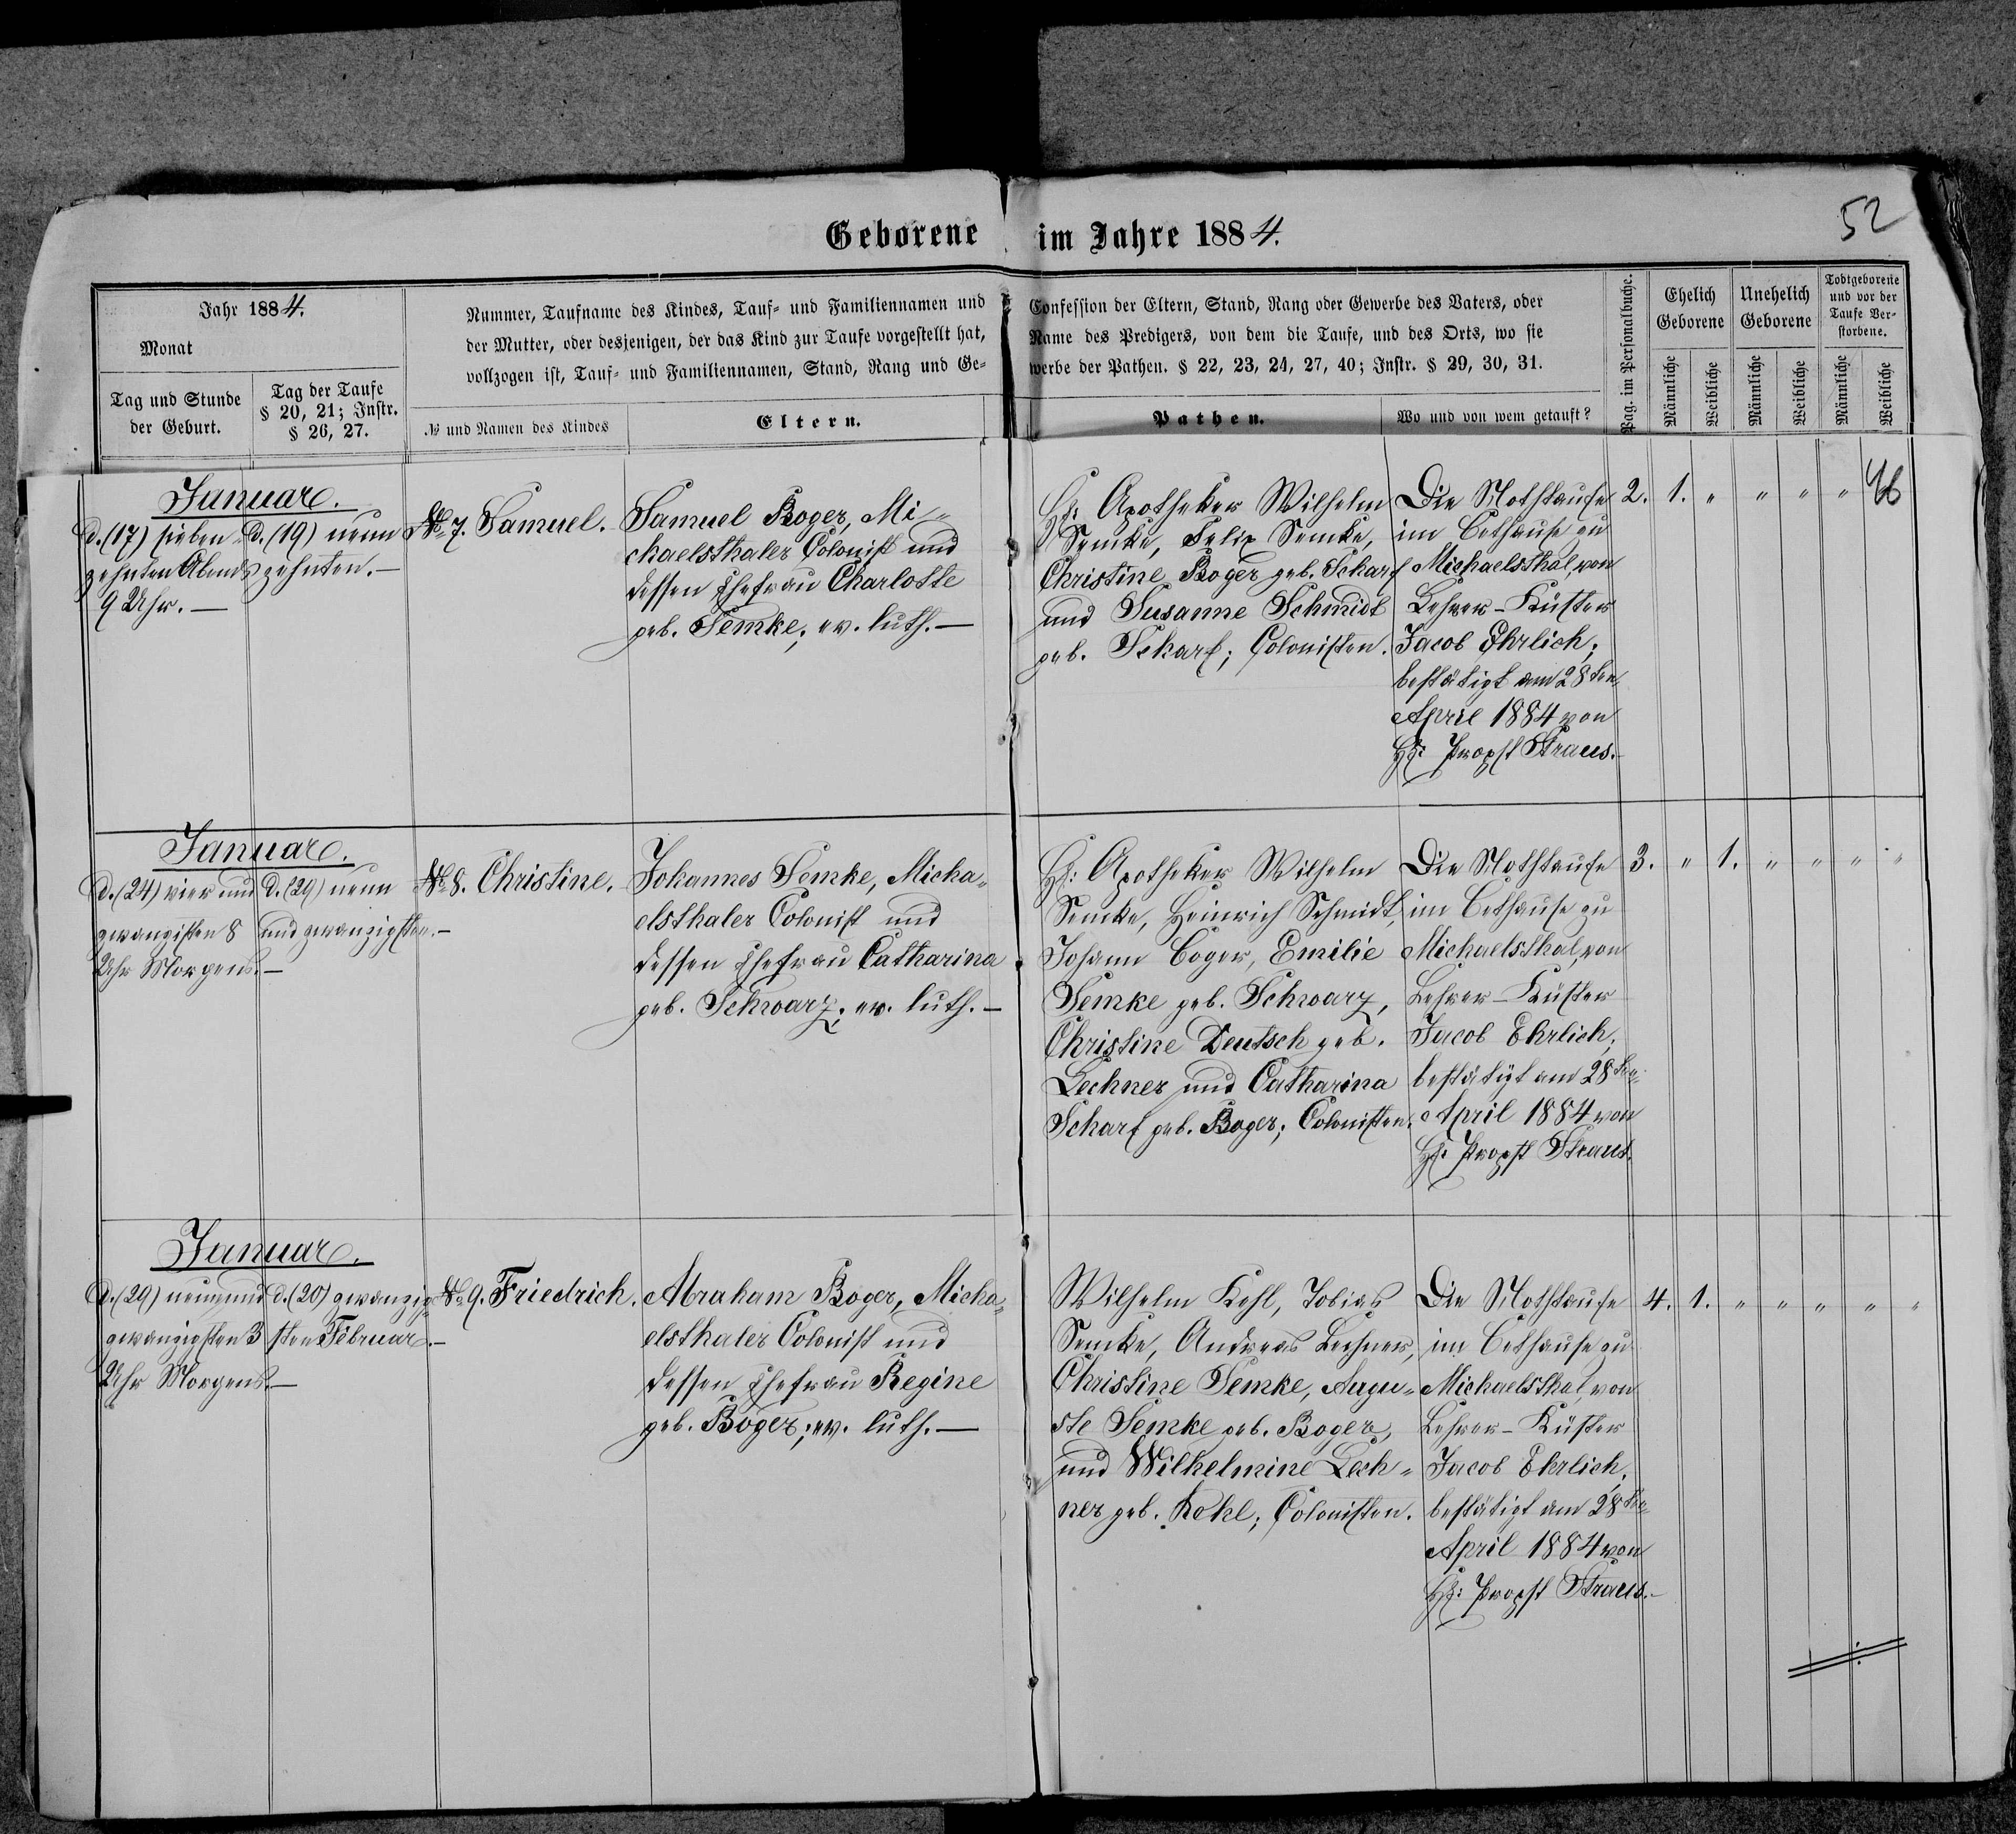 Geborene im Jahre 1884.
52
Jahr 1884.
Monat
Tag und Stunde
der Geburt.
Tag der Taufe
§ 20, 21; Instr.
§ 26, 27.
Nummer, Taufname des Kindes, Tauf- und Familiennamen und
der Mutter, oder desjenigen, der das Kind zur Taufe vorgestellt hat,
vollzogen ist, Tauf- und Familiennamen, Stand, Rang und Ge-
№ und Namen des Kindes
Eltern.
Confession der Eltern, Stand, Rang oder Gewerbe des Vaters, oder
Name des Predigers, von dem die Taufe, und des Orts, wo sie
werbe der Pathen. § 22, 23, 24, 27, 40; Instr. § 29, 30, 31.
Pathen.
Wo und von wem getauft?
Pag. im Personalbuche.
Ehelich
Geborene
Unehelich
Geborene
Todtgeborene
und vor der
Taufe Ver-
storbene.
Männliche
Weibliche
Männliche
Weibliche
Männliche
Weibliche
Januar.
d. (17) sieben-
zehnten Abends
9 Uhr. —
d. (19) neun
zehnten. —
№ 7. Samuel.
Samuel Boger, Mi-
chaelsthaler Colonist und
dessen Ehefrau Charlotte
geb. Semke; ev. luth. —
H: Apotheker Wilhelm
Semke, Felix Semke,
Christine Boger geb. Scharf
und Susanne Schmidt
geb. Scharf; Colonisten.
Die Nothtaufe
im Bethause zu
Michaelsthal, von
Lehrer-Küster
Jacob Ehrlich;
bestätigt am 28ten
April 1884 von
H: Propst Straus.
2. 1. " " " "
46
Januar.
d. (24) vier und
zwanzisten 8
Uhr Morgens. —
d. (29) neun
und zwanzigsten. —
№ 8. Christine.
Johannes Semke, Micha-
elsthaler Colonist und
dessen Ehefrau Catharina
geb. Schwarz; ev. luth. —
H: Apotheker Wilhelm
Semke, Heinrich Schmidt,
Johann Boger, Emilie
Semke geb. Schwarz,
Christine Deutsch geb.
Lechner und Catharina
Scharf geb. Boger; Colonisten.
Die Nothtaufe
im Bethause zu
Michaelsthal, von
Lehrer-Küster
Jacob Ehrlich;
bestätigt am 28ten
April 1884 von
H: Propst Straus.
3. " 1. " " " "
Januar.
d. (29) neun und
zwanzigsten 3
Uhr Morgens. —
d. (20) zwanzig-
sten Februar. —
№ 9. Friedrich.
Abraham Boger, Micha-
elsthaler Colonist und
dessen Ehefrau Regine
geb. Boger; ev. luth. —
Wilhelm Kehl, Tobias
Semke, Andreas Lechner,
Christine Semke, Augu-
ste Semke geb. Boger,
und Wilhelmine Lech-
ner geb. Kehl; Colonisten.
Die Nothtaufe
im Bethause zu
Michaelsthal, von
Lehrer-Küster
Jacob Ehrlich;
bestätigt am 28ten
April 1884 von
H: Propst Straus. —
4. 1. " " " " "